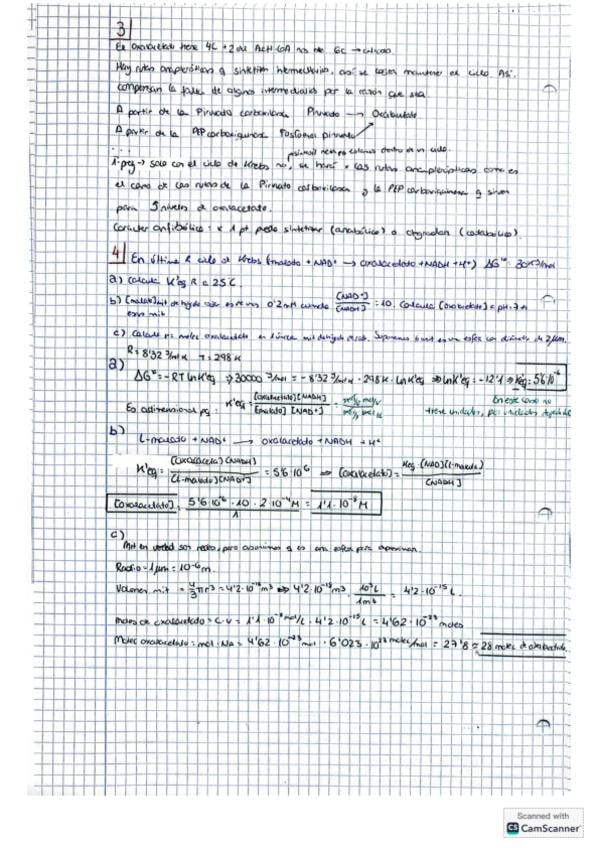 3
El oxalacetato tiene 4C + 2 de AcetilCoA nos da 6C → citrato.
Hay rutas anapleróticas q sintetizan intermediarios, así se logra mantener el ciclo. Así
compensan la falta de algunos intermediarios por la razón que sea.
A partir de la Piruvato carboxilasa Piruvato →
A partir de la PEP carboxiquinasa
...
solo con el ciclo de Krebs no, se hará x las rutas anapleróticas como es
el caso de las rutas de la Piruvato carboxilasa y la PEP carboxiquinasa q sirven
para niveles de oxalacetato.
Carácter anfibólico: x 1 pt puede sintetizar (anabólico) o degradar (catabólico).
4 En última R ciclo de Krebs (malato + NAD⁺ → oxalacetato + NADH + H⁺) ΔG°'
a) Calcula K'eq R a 25°C.
b) [malato] mit de hígado 0'2 mM cuando [NAD⁺]/[NADH] = 10. Calcula [oxalacetato] a pH=7
en mit
c) Calcula moléc oxalacetato en 1 única mit de hígado. Suponemos mit es una esfera con diámetro de 2 μm.
R = 8'32 J/mol K T = 298 K
a)
ΔG°' = -RT ln K'eq ⇒ 30000 J/mol = -8'32 J/mol K · 298 K · ln K'eq ⇒ ln K'eq = -12'1 ⇒ K'eq = 5'6·10⁻⁶
Es adimensional pq: K'eq = [oxalacetato][NADH]/[malato][NAD⁺] En este caso no
tiene unidades,
b)
L-malato + NAD⁺ → oxalacetato + NADH + H⁺
K'eq = [oxalacetato][NADH]/[L-malato][NAD⁺] = 5'6·10⁻⁶ ⇒ [oxalacetato] = Keq·[NAD][L-malato]/[NADH]
[oxalacetato] = 5'6·10⁻⁶ · 10 · 2·10⁻⁴ M / 1 = 1'1·10⁻⁸ M
c)
Mit en verdad son pero asumimos q es una esfera para aproximar.
Radio = 1 μm = 10⁻⁶ m.
Volumen mit = 4/3 πr³ = 4'2·10⁻¹⁸ m³ ⇒ 4'2·10⁻¹⁸ m³ · 10³ L/1 m³ = 4'2·10⁻¹⁵ L.
moles de oxalacetato = C·V = 1'1·10⁻⁸ mol/L · 4'2·10⁻¹⁵ L = 4'62·10⁻²³ moles
Moléc oxalacetato = mol·NA = 4'62·10⁻²³ mol · 6'023·10²³ moléc/mol = 27'8 ≈ 28 moléc de oxalacetato.
Scanned with
CS CamScanner